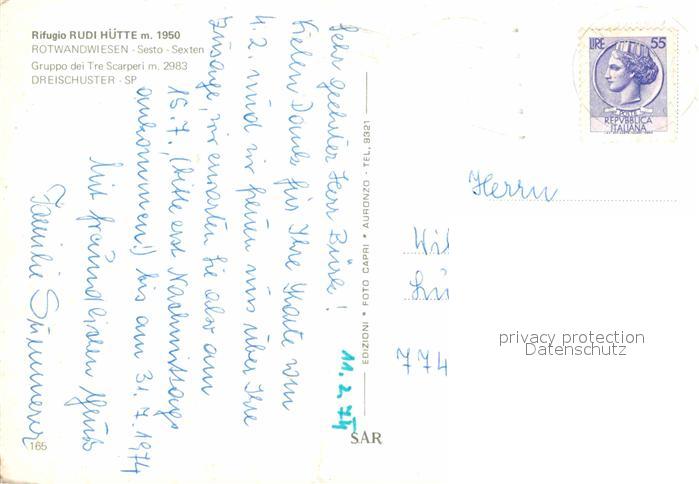 Rifugio RUDI HÜTTE m. 1950
ROTWANDWIESEN - Sesto - Sexten
Gruppo dei Tre Scarperi m. 2983
DREISCHUSTER - SP
Sehr geehrter Herr Bürk!
Vielen Dank für Ihre Karte vom
4.2. und wir freuen uns über Ihre
Zusage, wir erwarten Sie also am
15.7. (bitte erst Nachmittags
ankommen!) bis am 31.7.1974
Mit freundlichen Gruß
Familie Summerer
11.2.74
165
EDIZIONI * FOTO CAPRI * AURONZO - TEL. 9321
SAR
LIRE 55
POSTE
REPVBBLICA
ITALIANA
Herrn
Wil
774
privacy protection
Datenschutz